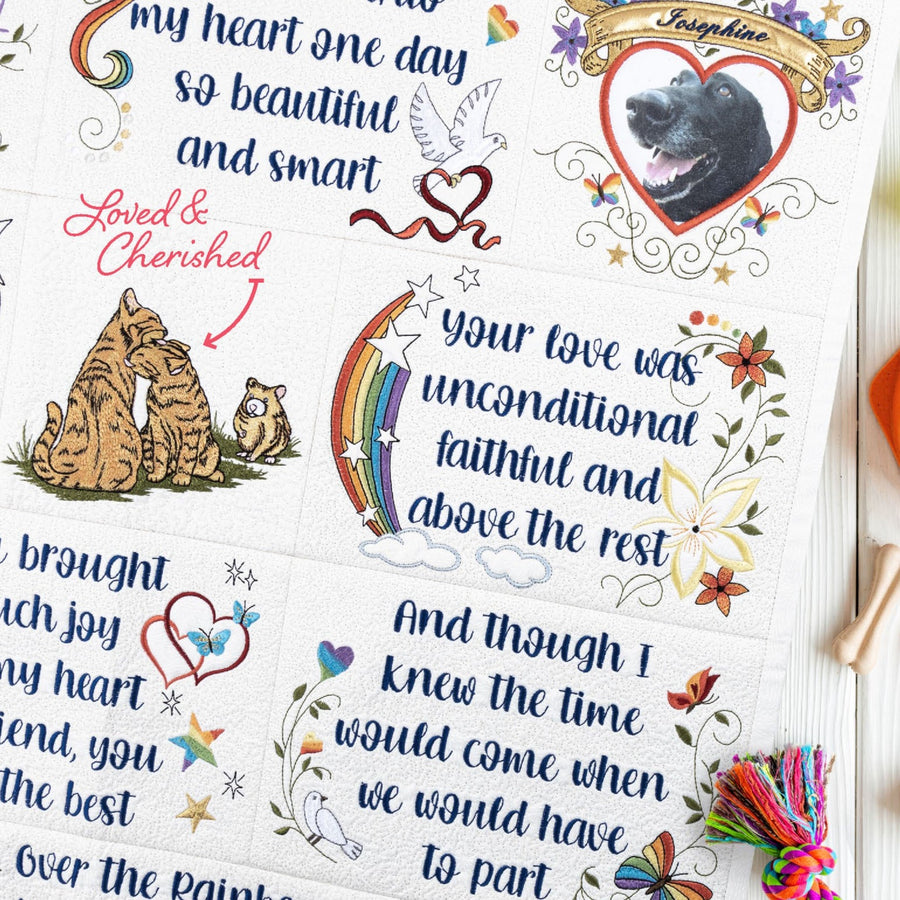 my heart one day
so beautiful
and smart
Josephine
Loved &
Cherished
your love was
unconditional
faithful and
above the rest
brought
joy
my heart
you
the best
And though I
knew the time
would come when
we would have
to part
Over the